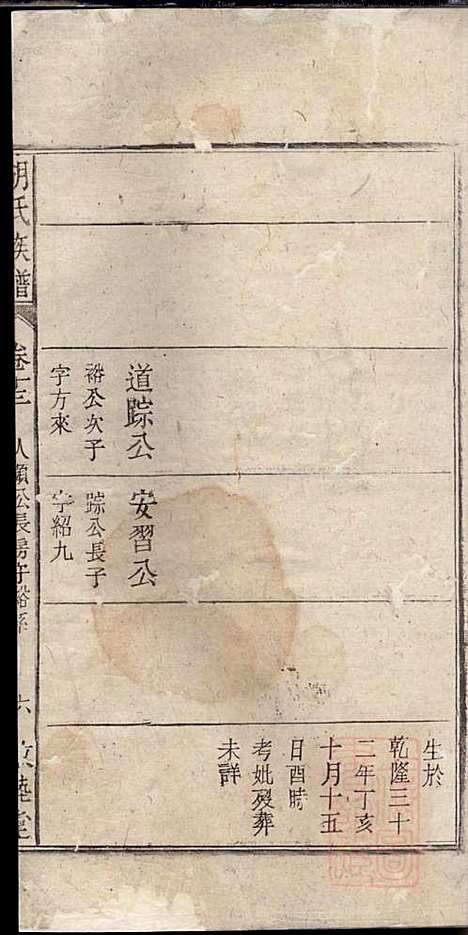 道踪公
裕公次子
字方來
安習公
踪公長子
字紹九
生於
乾隆三十
二年丁亥
十月十五
日酉時
考妣歿葬
未詳
胡氏族譜
卷十三
六